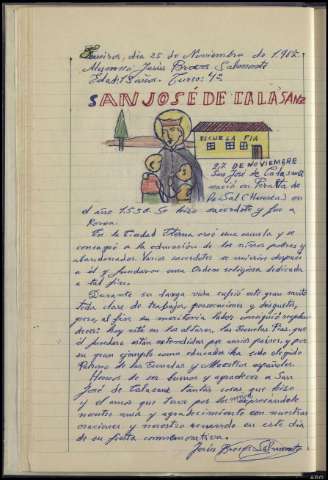 día 25 de Noviembre de
Alumno: Jesús Salmonte
Edad: años. Curso: 4º
SAN JOSÉ DE CALASANZ
ESCUELA PIA
27 DE NOVIEMBRE
San José de Calasanz
nació en Peralta de
la Sal (Huesca) en
el año 1556. Se hizo sacerdote y fue a
Roma.
En la Ciudad Eterna creó una escuela y se
consagró a la educación de los niños pobres y
abandonados. Varios sacerdotes se unieron después
a él y fundaron una Orden religiosa dedicada
a tal fin.
Durante su larga vida sufrió este gran santo
toda clase de trabajos, persecuciones y disgustos,
pero, al fin su meritoria labor consiguió
hoy está en los altares, las Escuelas Pías, que
él fundara están extendidas por varios países, y por
su gran ejemplo como educador ha sido elegido
Patrono de las Escuelas y Maestros españoles.
Hemos de ser buenos y agradecer a San
José de Calasanz tantas cosas que hizo
y el amor que tuvo por los niños,
nuestro y agradecimiento con nuestras
oraciones y nuestro recuerdo en este día
de su fiesta conmemorativa.
Jesús Salmonte